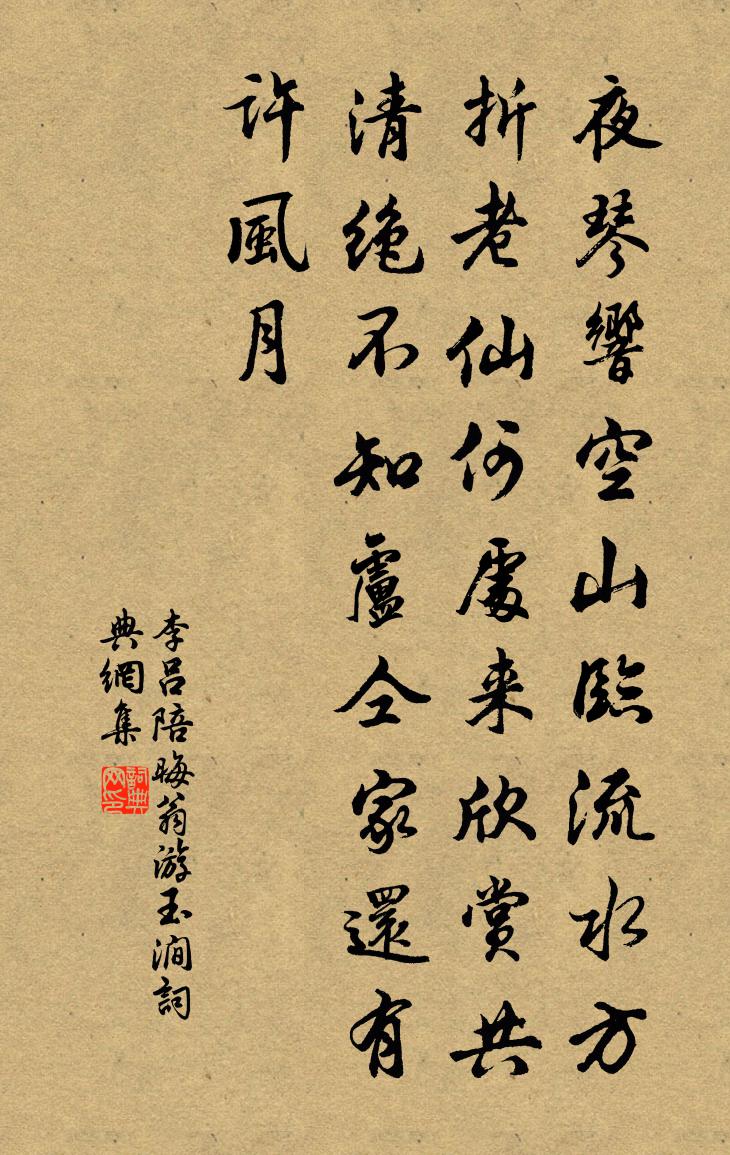 夜琴響空山臨流水方
折老仙何處来欣賞共
清絶不知盧仝家還有
許風月
李呂陪晦翁游玉澗詞
典網集
詞典
网印